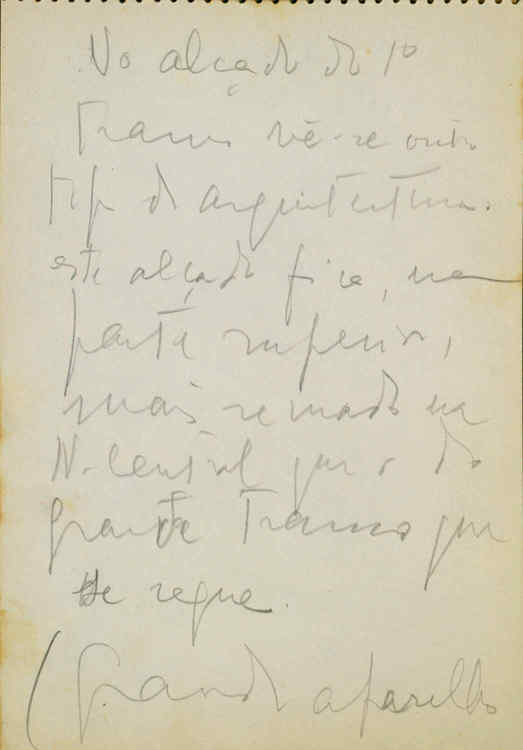 No alçado do 1º
Tramo vê-se outro
tipo de arquitectura.
este alçado fica, na
parte superior,
mais remado na
N. Central que o do
grande Tramo que
se segue.
(Grande aparelho